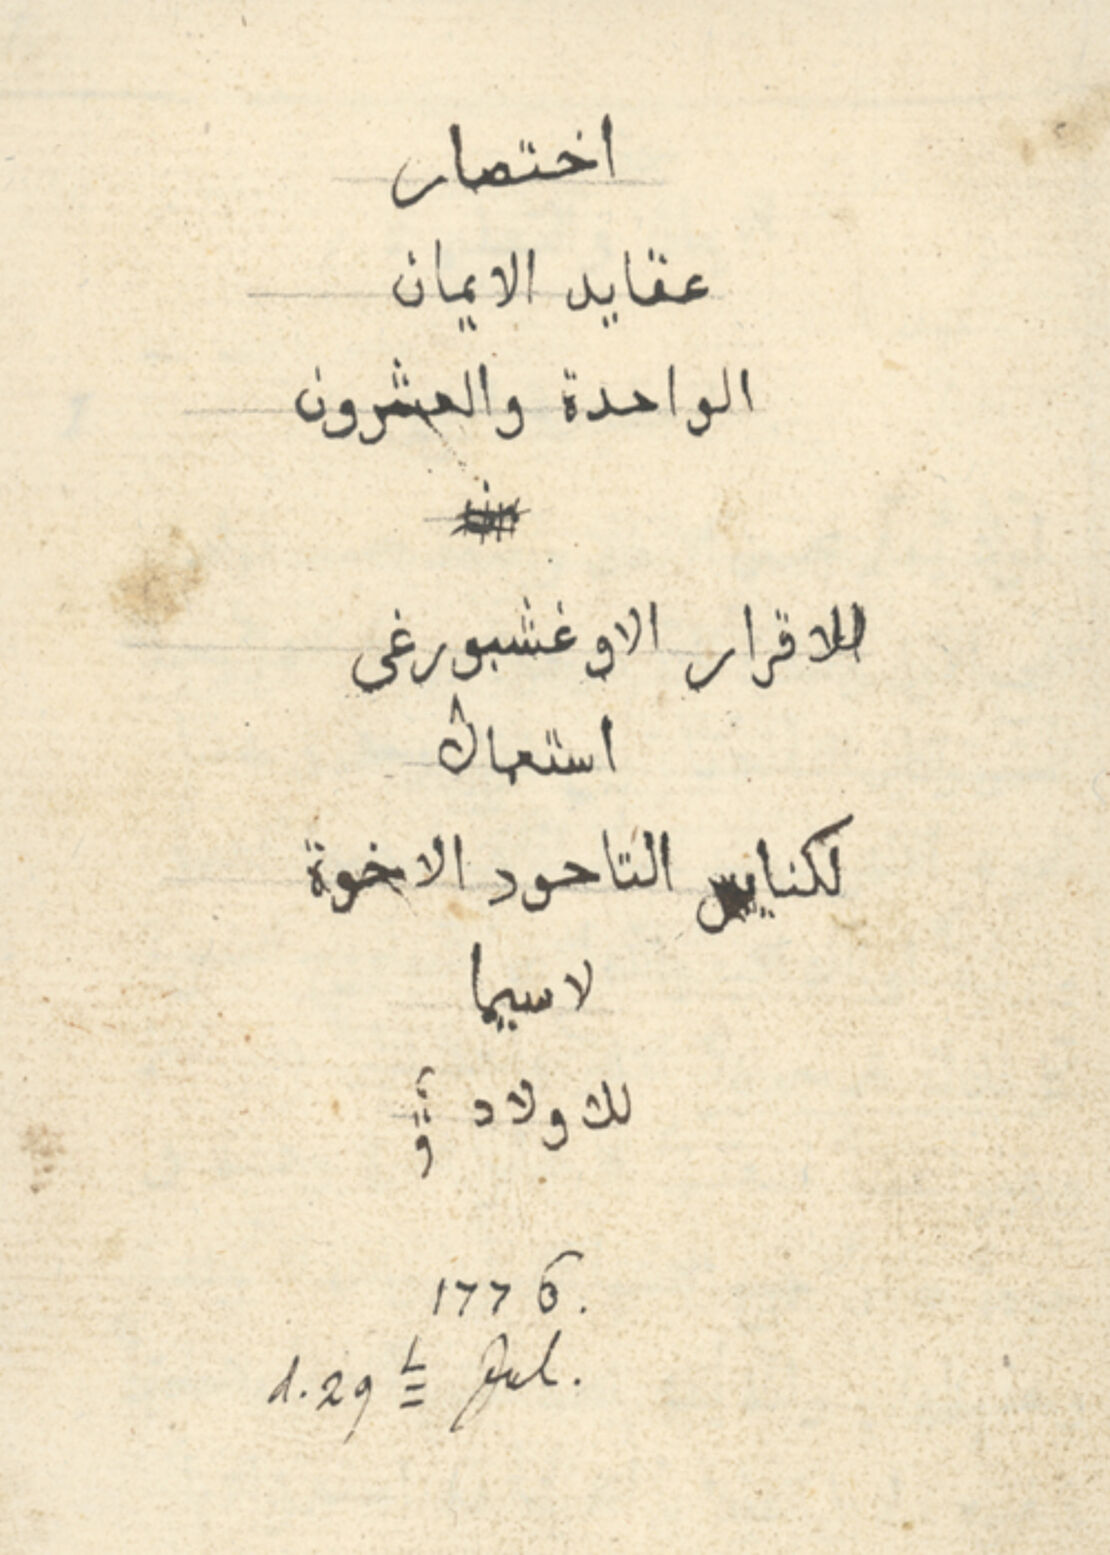 اختصار
عقايد الايمان
الواحدة والعشرون
للاقرار الاوغشبورغى
استعمال
لكنايس التاحود الاخوة
لاسيما
للاولاد
1776.
d. 29 t Jul.